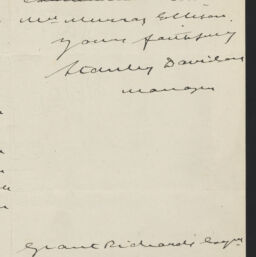 Mrs Murray Ellison.
Yours faithfully
Stanley Davidson
Manager
Grant Richards Esqre